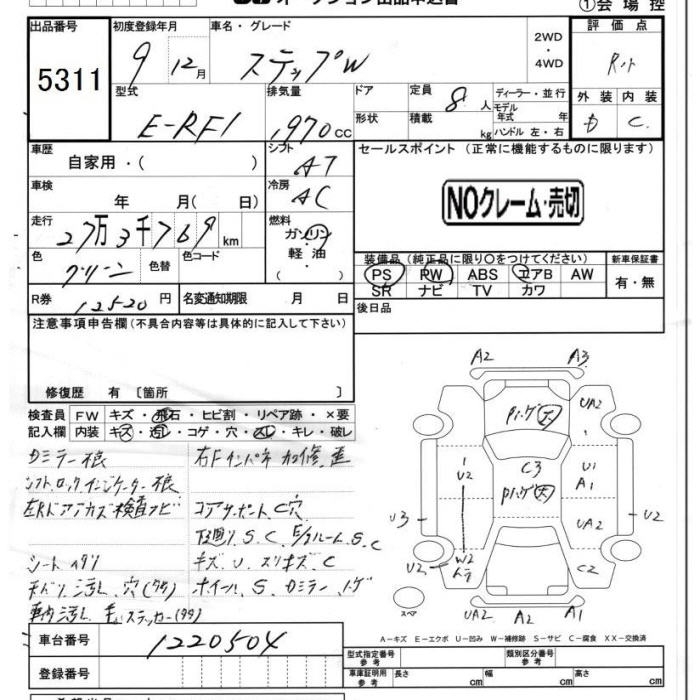 オークション出品申込書
①会場控
出品番号
5311
初度登録年月
9 12月
車名・グレード
ステップW
2WD
・
4WD
評価点
R
型式
E-RF1
排気量
1,970cc
ドア
形状
定員
8人
積載
kg
ディーラー・並行
モデル
年式 年
ハンドル 左・右
外装 内装
D C
車歴
自家用・( )
シフト
AT
セールスポイント (正常に機能するものに限ります)
NOクレーム・売切
車検
年 月( 日)
冷房
AC
走行
27万3千769km
燃料
ガソリン
軽油
( )
色
グリーン
色替
色コード
装備品 (純正品に限り○をつけてください)
PS PW ABS エアB AW
SR ナビ TV カワ
新車保証書
有・無
R券
12520円
名変通知期限 月 日
後日品
注意事項申告欄 (不具合内容等は具体的に記入して下さい)
修復歴 有 [箇所 ]
検査員
記入欄
FW キズ・飛石・ヒビ割・リペア跡・×要
内装 キズ・汚レ・コゲ・穴・スレ・キレ・破レ
カミラー根
シフトロックインジケーター根
右Fインパネ加修歪
コアサポートC穴
下廻りS.C E/gルームS.C
シートヘタリ
キズ U スリキズ C
天バリ汚レ、穴(タタ)
ホイールS カミラートゲ
車内汚レ ステッカー(タタ)
A2 A3
UA2
Pハゲ大
U2
C3
U1
A1
Pハゲ大
U3
UA2
U2
U2
W2
C2
スペア
UA2 A2 A1
A-キズ E-エクボ U-凹み W-補修跡 S-サビ C-腐食 XX-交換済
車台番号
1220504
登録番号
型式指定番号
参考
類別区分番号
参考
車庫証明用
参考
長さ cm 幅 cm 高さ cm